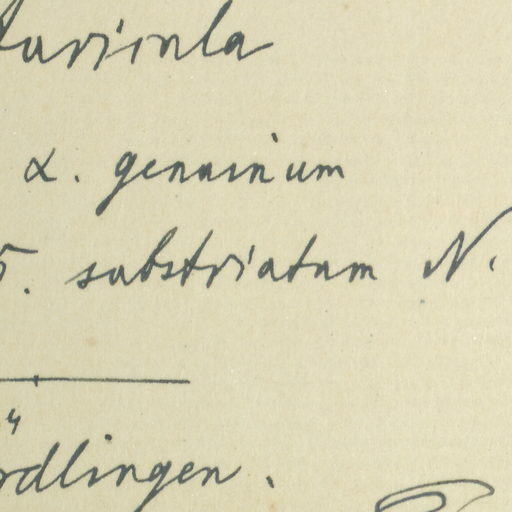 Auricula
α. genuinum
5. substriatum N.
ördlingen.